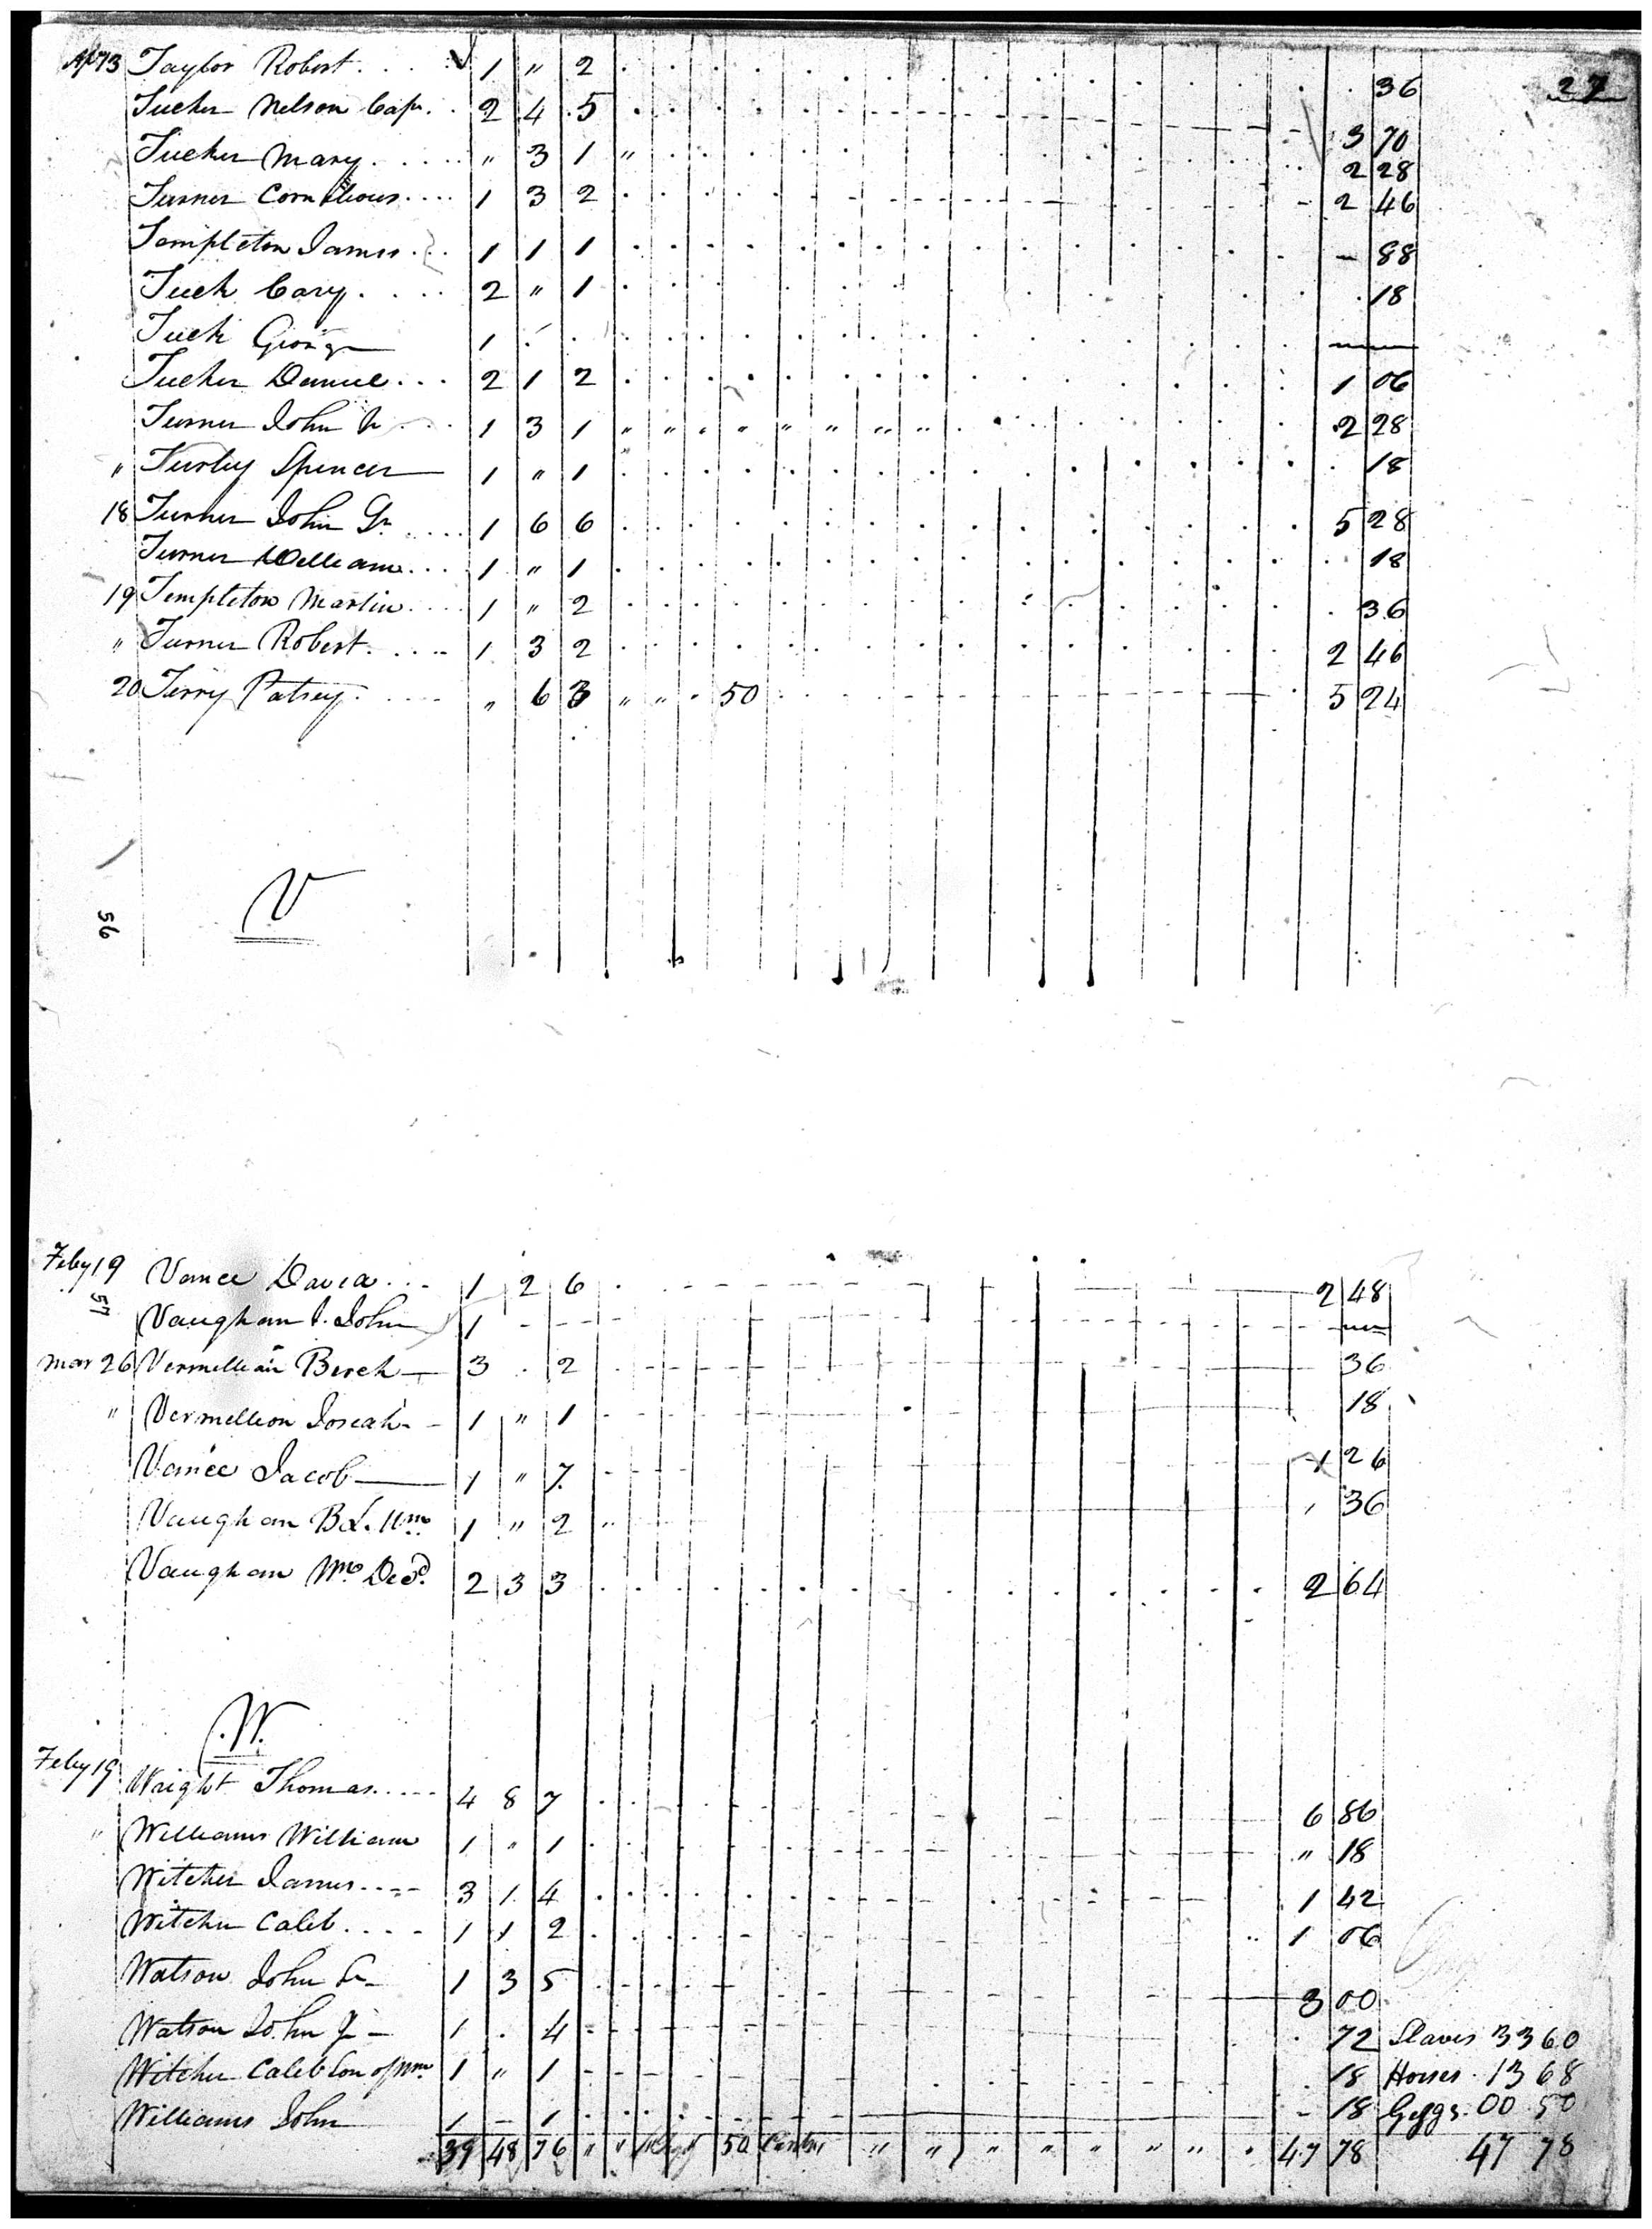 27
Apl 13 Taylor Robert 1 " 2 36
Tucker Nelson Capt. 2 4 5 3 70
Tucker Mary " 3 1 " 2 28
Turner Cornelious 1 3 2 2 46
Templeton James 1 1 1 - 88
Tuck Cary 2 " 1 18
Tuck George 1
Tucker Daniel 2 1 2 1 06
Turner John 1 3 1 " " " " " " " " 2 28
" Turley Spencer 1 " 1 18
18 Turner John Gr. 1 6 6 5 28
Turner William 1 " 1 18
19 Templeton Martin 1 " 2 36
" Turner Robert 1 3 2 2 46
20 Terry Patsey " 6 3 " " 50 5 24
V
56
Feby 19 Vance David 1 2 6 2 48
57
Vaughan J. John 1
Mar 26 Vermillian Birch 3 . 2 36
" Vermellion Josiah 1 " 1 18
Vance Jacob 1 " 7 1 26
Vaughan Wm 1 " 2 " 36
Vaughan Wm Decd. 2 3 3 2 64
W.
Feby 19 Wright Thomas 4 8 7 6 86
" Williams William 1 " 1 " 18
Witcher James 3 1 4 1 42
Witcher Caleb 1 1 2 1 06
Watson John Sr 1 3 5 3 00
Watson John Jr 1 . 4 72 Slaves 33 60
Witcher Caleb Son of Wm. 1 " 1 18 Horses 13 68
Williams John 1 - 1 - 18 Geggs. 00 50
39 48 76 " " 50 Cents " " " " " " " 47 78 47 78